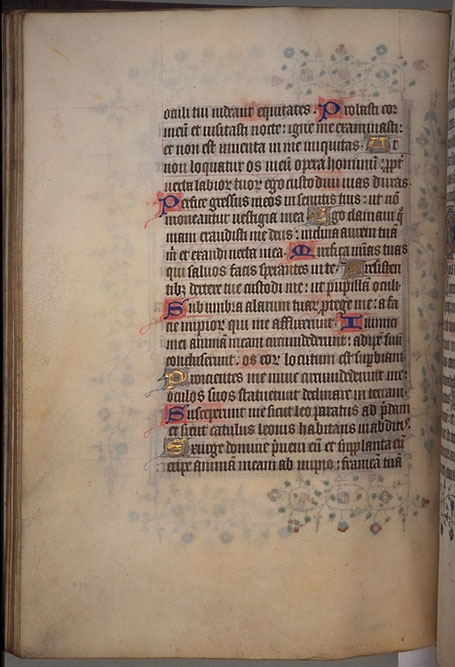 oculi tui videant equitates. Probasti cor
meū et visitasti nocte: igne me examinasti:
et non est inventa in me iniquitas. Ut
non loquatur os meū opera hominū: ppt̄
verba labior tuor ego custodivi vias duras.
Perfice gressus meos in semitis tuis: ut nō
moveantur vestigia mea. Ego clamavi q̄
niam exaudisti me deus: inclina aurem tuā
m̄ et exaudi verba mea. Mirifica mīas tuas
qui salvos facis sperantes in te. A resisten
tibȝ dextere tue custodi me: ut pupillā oculi.
Sub umbra alarum tuar protege me: a fa
cie impior qui me afflixerunt. Inimici
mei animā meam circumdederunt: adipē suū
concluserunt. os eor locutum est supbiam
Proicientes me nunc circumdederunt me:
oculos suos statuerunt declinare in terram
Susceperunt me sicut leo paratus ad p̄dam
et sicut catulus leonis habitans in abditis.
Exurge domine p̄veni eū et supplanta eū
eripe animā meam ab impio: frameā tuā